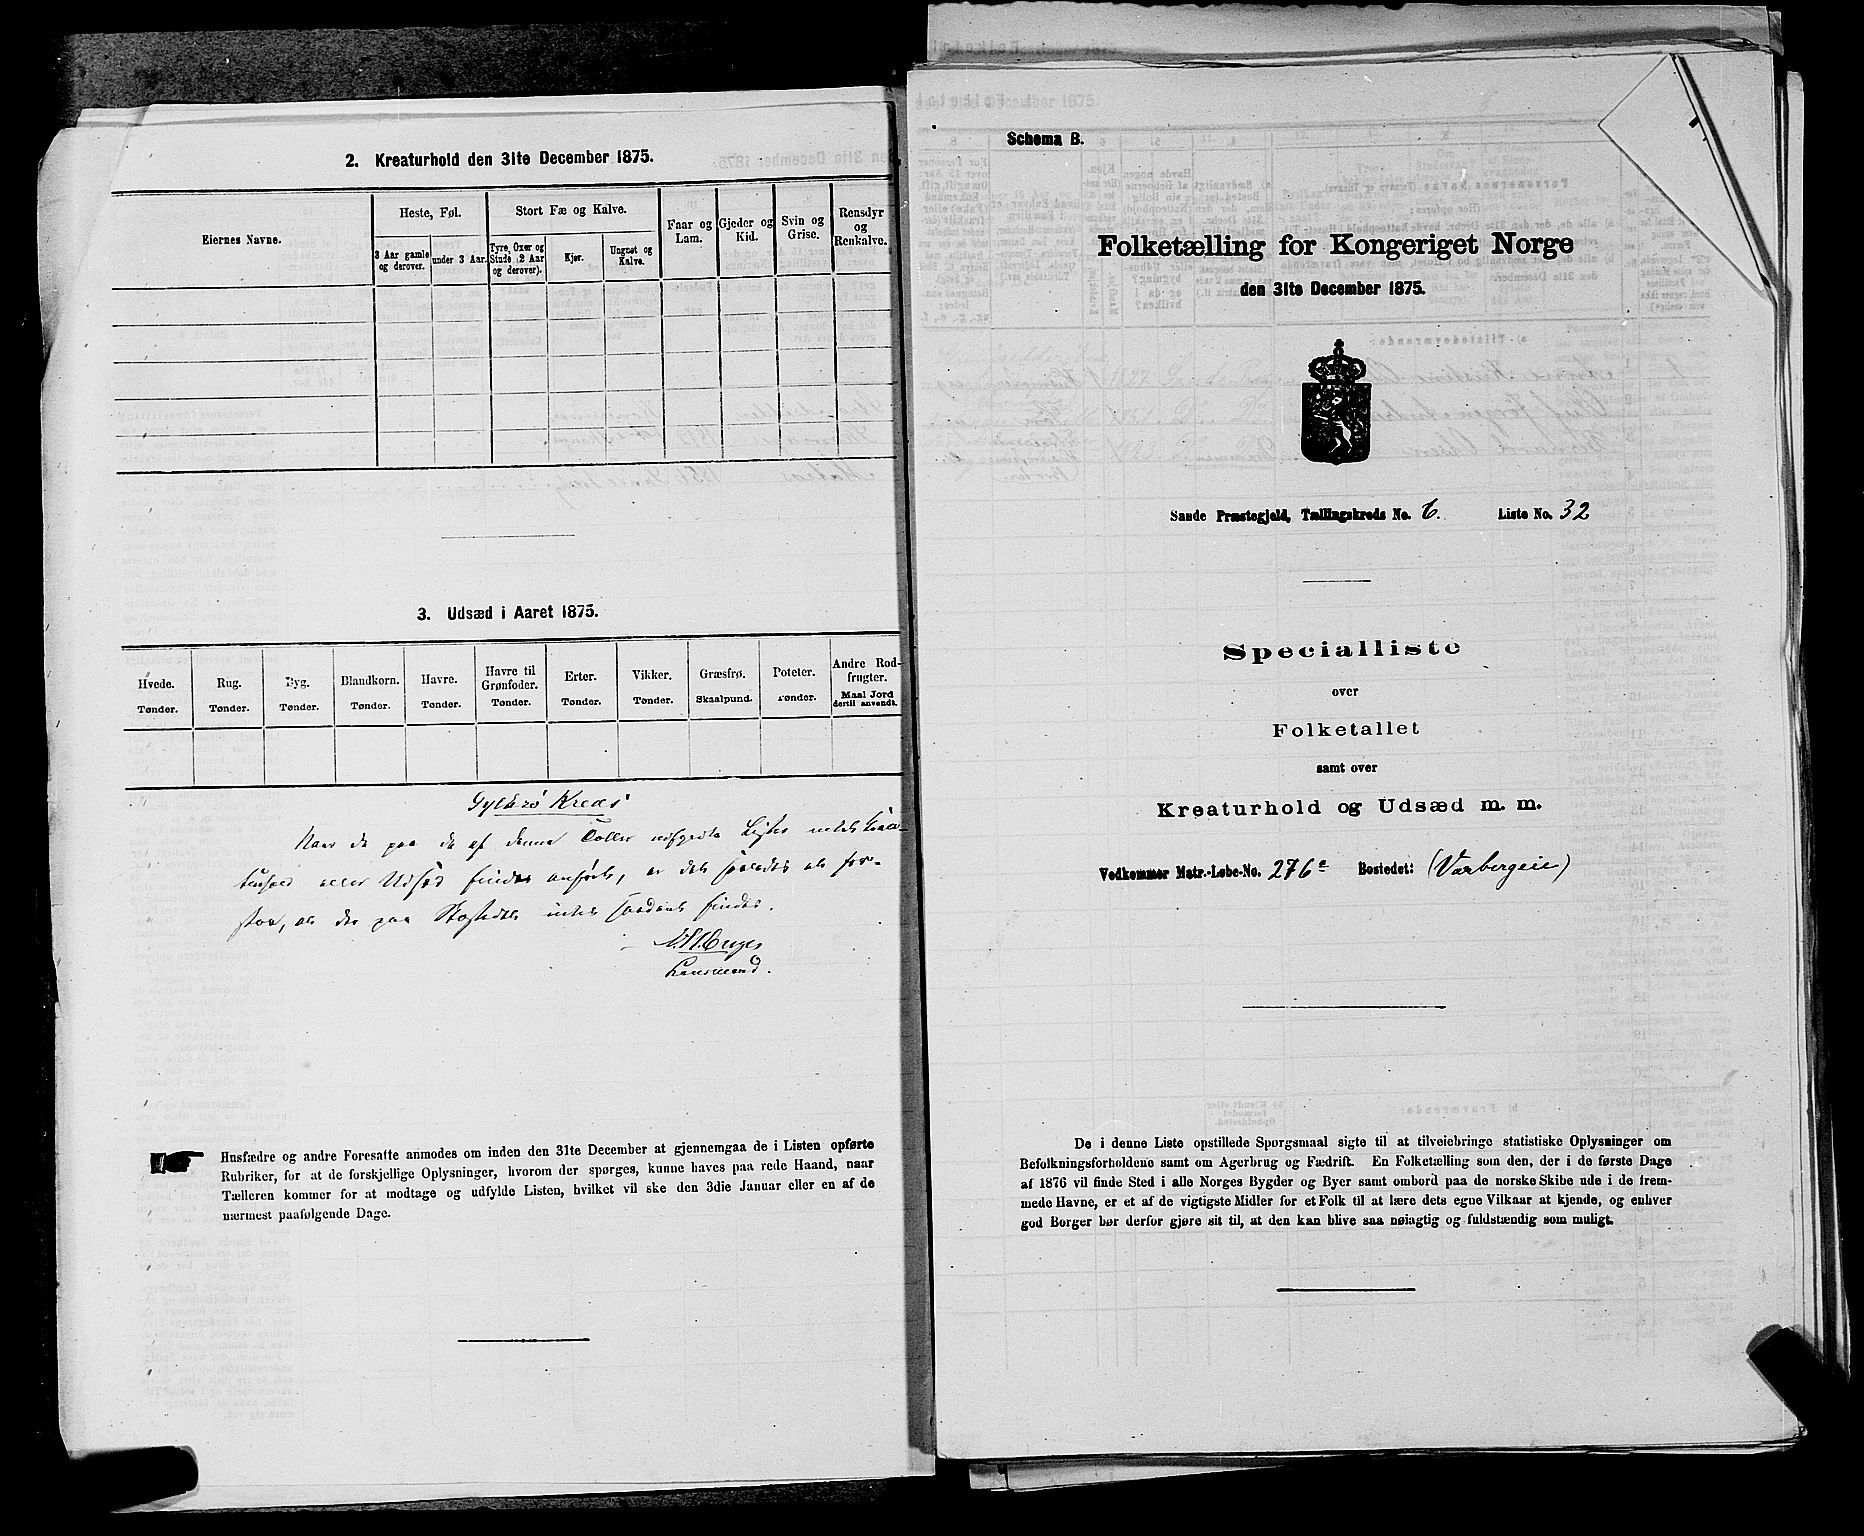 2. Kreaturhold den 31te December 1875.
Eiernes Navne.
Heste, Føl.
3 Aar gamle og derover.
under 3 Aar.
Stort Fæ og Kalve.
Tyre, Oxer og Stude (2 Aar og derover).
Kjør.
Ungnøt og Kalve.
Faar og Lam.
Gjeder og Kid.
Svin og Grise.
Rensdyr og Renkalve.
3. Udsæd i Aaret 1875.
Hvede. Tønder.
Rug. Tønder.
Byg. Tønder.
Blandkorn. Tønder.
Havre. Tønder.
Havre til Grønfoder. Tønder.
Erter. Tønder.
Vikker. Tønder.
Græsfrø. Skaalpund.
Poteter. Tønder.
Andre Rodfrugter. Maal Jord dertil anvendt.
Kreds
Naar de paa de af denne Tæller Lister intet
eller Udsæd findes anført, er det saaledes at for-
staa, at der paa Bostedet intet saadant findes.
Lensmand.
Husfædre og andre Foresatte anmodes om inden den 31te December at gjennemgaa de i Listen opførte
Rubriker, for at de forskjellige Oplysninger, hvorom der spørges, kunne haves paa rede Haand, naar
Tælleren kommer for at modtage og udfylde Listen, hvilket vil ske den 3die Januar eller en af de
nærmest paafølgende Dage.
Schema B.
Folketælling for Kongeriget Norge
den 31te December 1875.
Sande Præstegjeld, Tællingskreds No. 6. Liste No. 32
Specialliste
over
Folketallet
samt over
Kreaturhold og Udsæd m. m.
Vedkommer Matr.-Løbe-No. 276e Bostedet: (Varbergeie)
De i denne Liste opstillede Spørgsmaal sigte til at tilveiebringe statistiske Oplysninger om
Befolkningsforholdene samt om Agerbrug og Fædrift. En Folketælling som den, der i de første Dage
af 1876 vil finde Sted i alle Norges Bygder og Byer samt ombord paa de norske Skibe ude i de frem-
mede Havne, er et af de vigtigste Midler for et Folk til at lære dets egne Vilkaar at kjende, og enhver
god Borger bør derfor gjøre sit til, at den kan blive saa nøiagtig og fuldstændig som muligt.